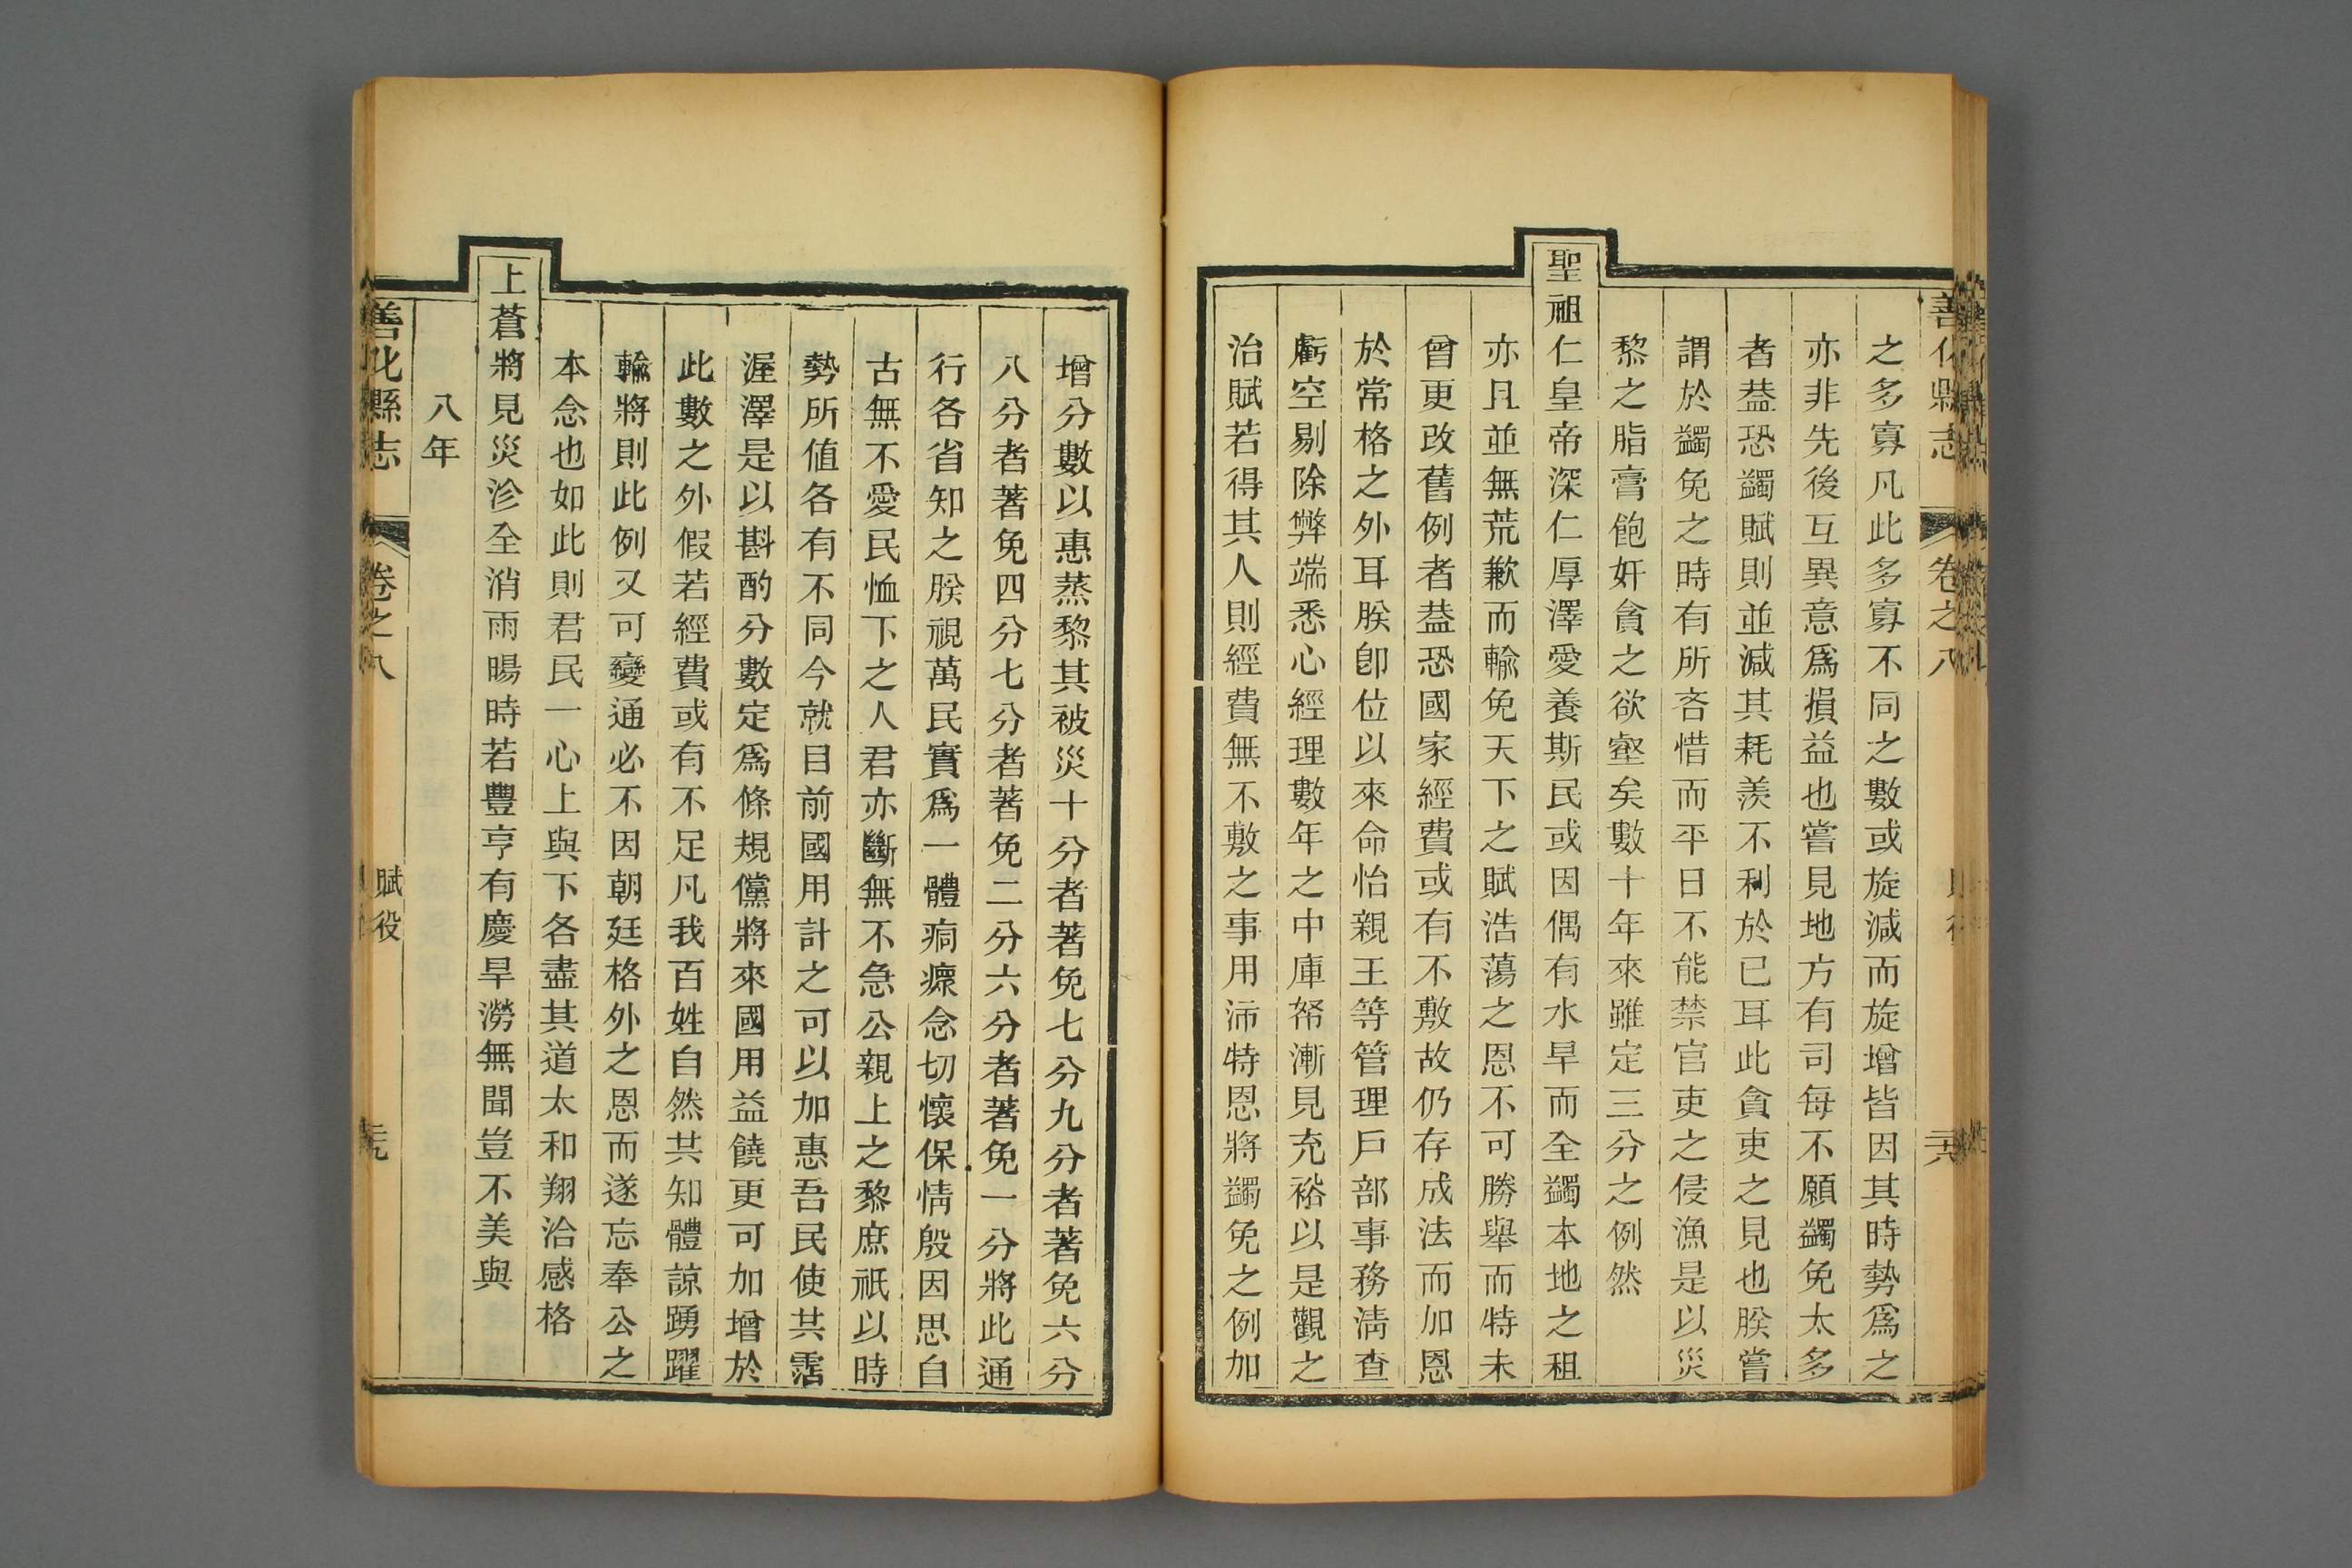 善化縣志
卷之八
之多寡凡此多寡不同之數或旋減而旋增皆因其時勢爲之
亦非先後互異意爲損益也嘗見地方有司每不願蠲免太多
者葢恐蠲賦則並減其耗羨不利於已耳此貪吏之見也朕嘗
謂於蠲免之時有所吝惜而平日不能禁官吏之侵漁是以災
黎之脂膏飽奸貪之欲壑矣數十年來雖定三分之例然
聖祖仁皇帝深仁厚澤愛養斯民或因偶有水旱而全蠲本地之租
亦且並無荒歉而輸免天下之賦浩蕩之恩不可勝舉而特未
曾更改舊例者葢恐國家經費或有不敷故仍存成法而加恩
於常格之外耳朕卽位以來命怡親王等管理戶部事務淸查
虧空剔除弊端悉心經理數年之中庫帑漸見充裕以是觀之
治賦若得其人則經費無不敷之事用沛特恩將蠲免之例加
增分數以惠蒸黎其被災十分者著免七分九分者著免六分
八分者著免四分七分者著免二分六分者著免一分將此通
行各省知之朕視萬民實爲一體痌瘝念切懷保情殷因思自
古無不愛民恤下之人君亦斷無不急公親上之黎庶祇以時
勢所值各有不同今就目前國用計之可以加惠吾民使共霑
渥澤是以斟酌分數定爲條規儻將來國用益饒更可加增於
此數之外假若經費或有不足凡我百姓自然共知體諒踴躍
輸將則此例又可變通必不因朝廷格外之恩而遂忘奉公之
本念也如此則君民一心上與下各盡其道太和翔洽感格
上蒼將見災沴全消雨暘時若豐亨有慶旱澇無聞豈不美與
八年
善化縣志
卷之八
賦役